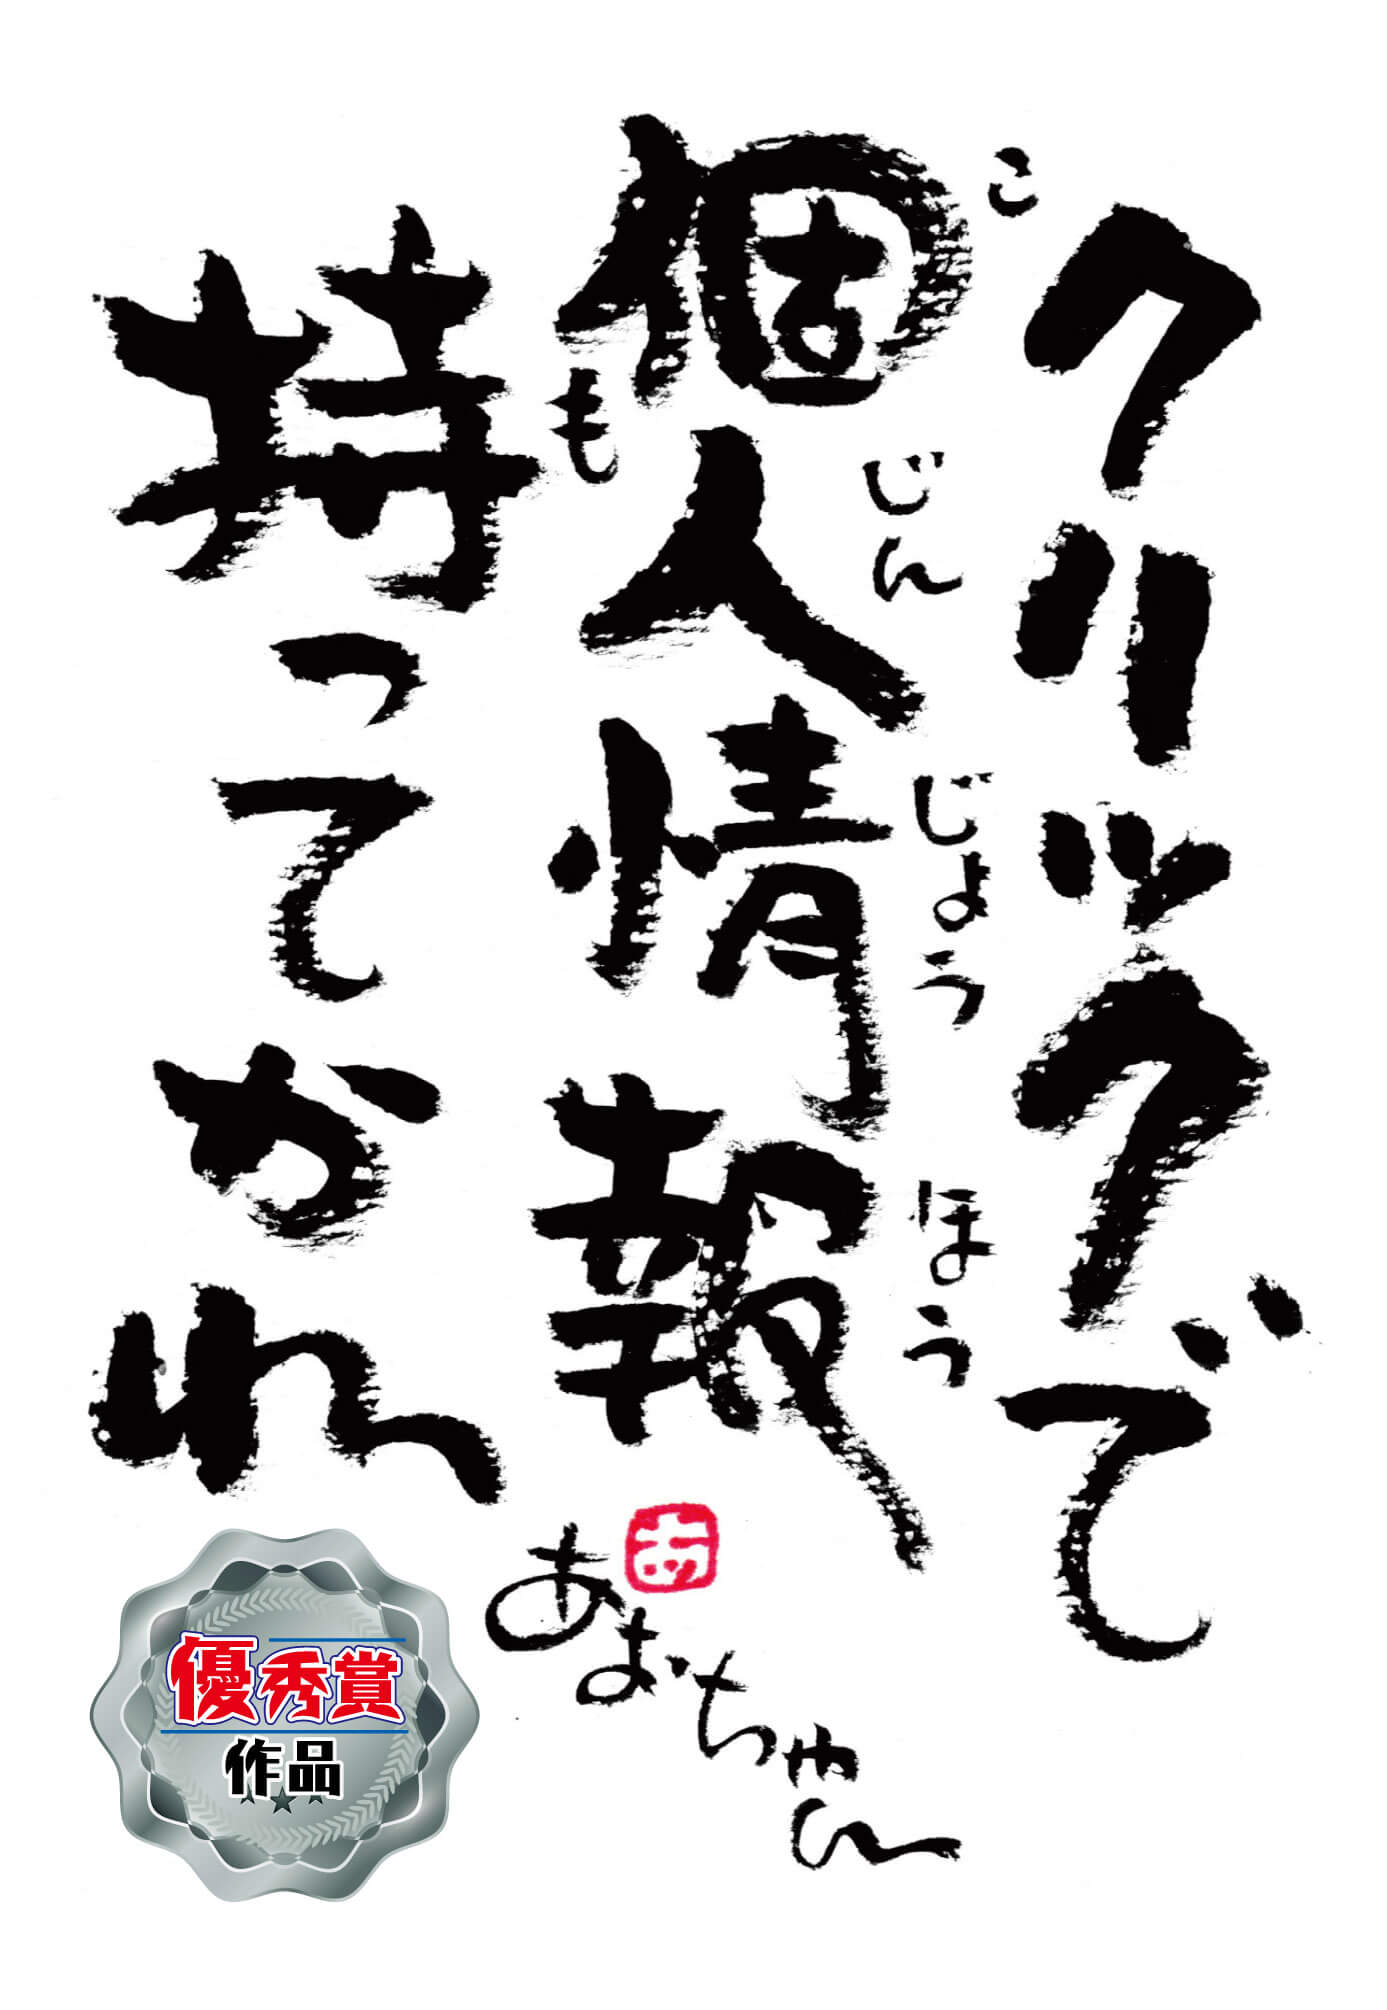 クリックで
個人情報
こ じん じょう ほう
持ってかれ
も
あおちゃん
あ
優秀賞
作品